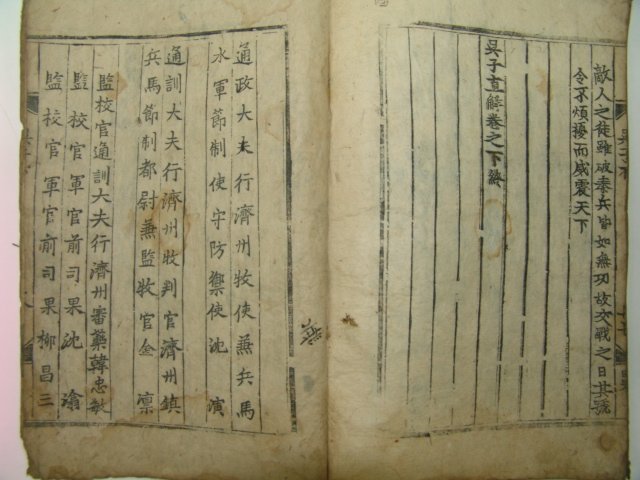 敵人之徒雖破秦兵皆如無功故交戰之日其號
令不煩擾而威震天下
吳子直解卷之下終
通政大夫行濟州牧使兼兵馬
水軍節制使守防禦使沈演
通訓大夫行濟州牧判官濟州鎮
兵馬節制都尉兼監牧官金凛
監校官通訓大夫行濟州審藥韓忠敏
監校官軍官前司果沈渝
監校官軍官前司果柳昌三